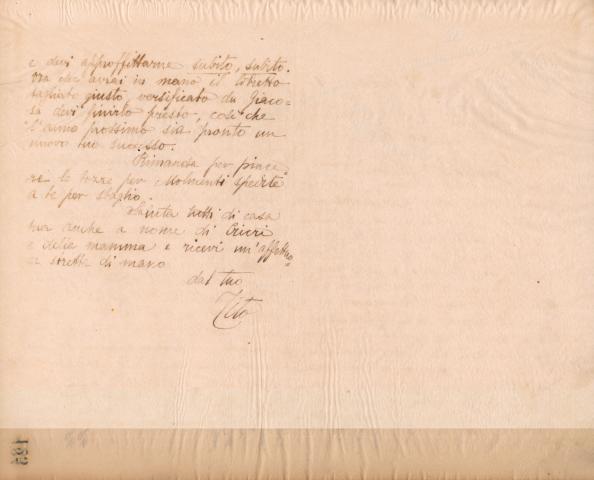 e devi approfittarne subito, subito.
Ora che avrai in mano il libretto
tagliato giusto, versificato da Giaco-
sa devi finirlo presto, così che
l'anno prossimo sia pronto un
nuovo tuo successo.
Rimanda per piace
re le bozze per Molmenti spedite
a te per sbaglio.
Saluta tutti di casa
tua anche a nome di Cricri
e della mamma e ricevi un'affettuo-
sa stretta di mano
dal tuo
Tito
189